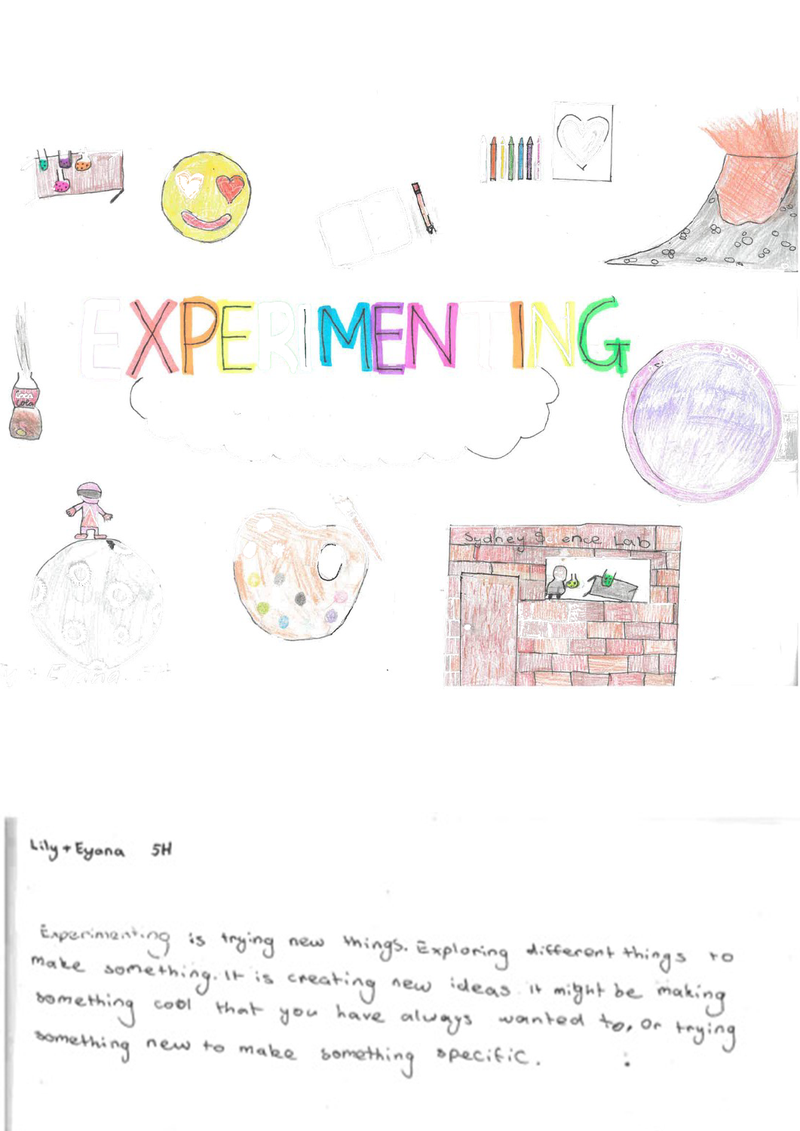 EXPERIMENTING
Coca
Cola
Sydney Science Lab
Lily + Eyana 5H
Experimenting is trying new things. Exploring different things to
make something. It is creating new ideas. it might be making
something cool that you have always wanted to, or trying
something new to make something specific.